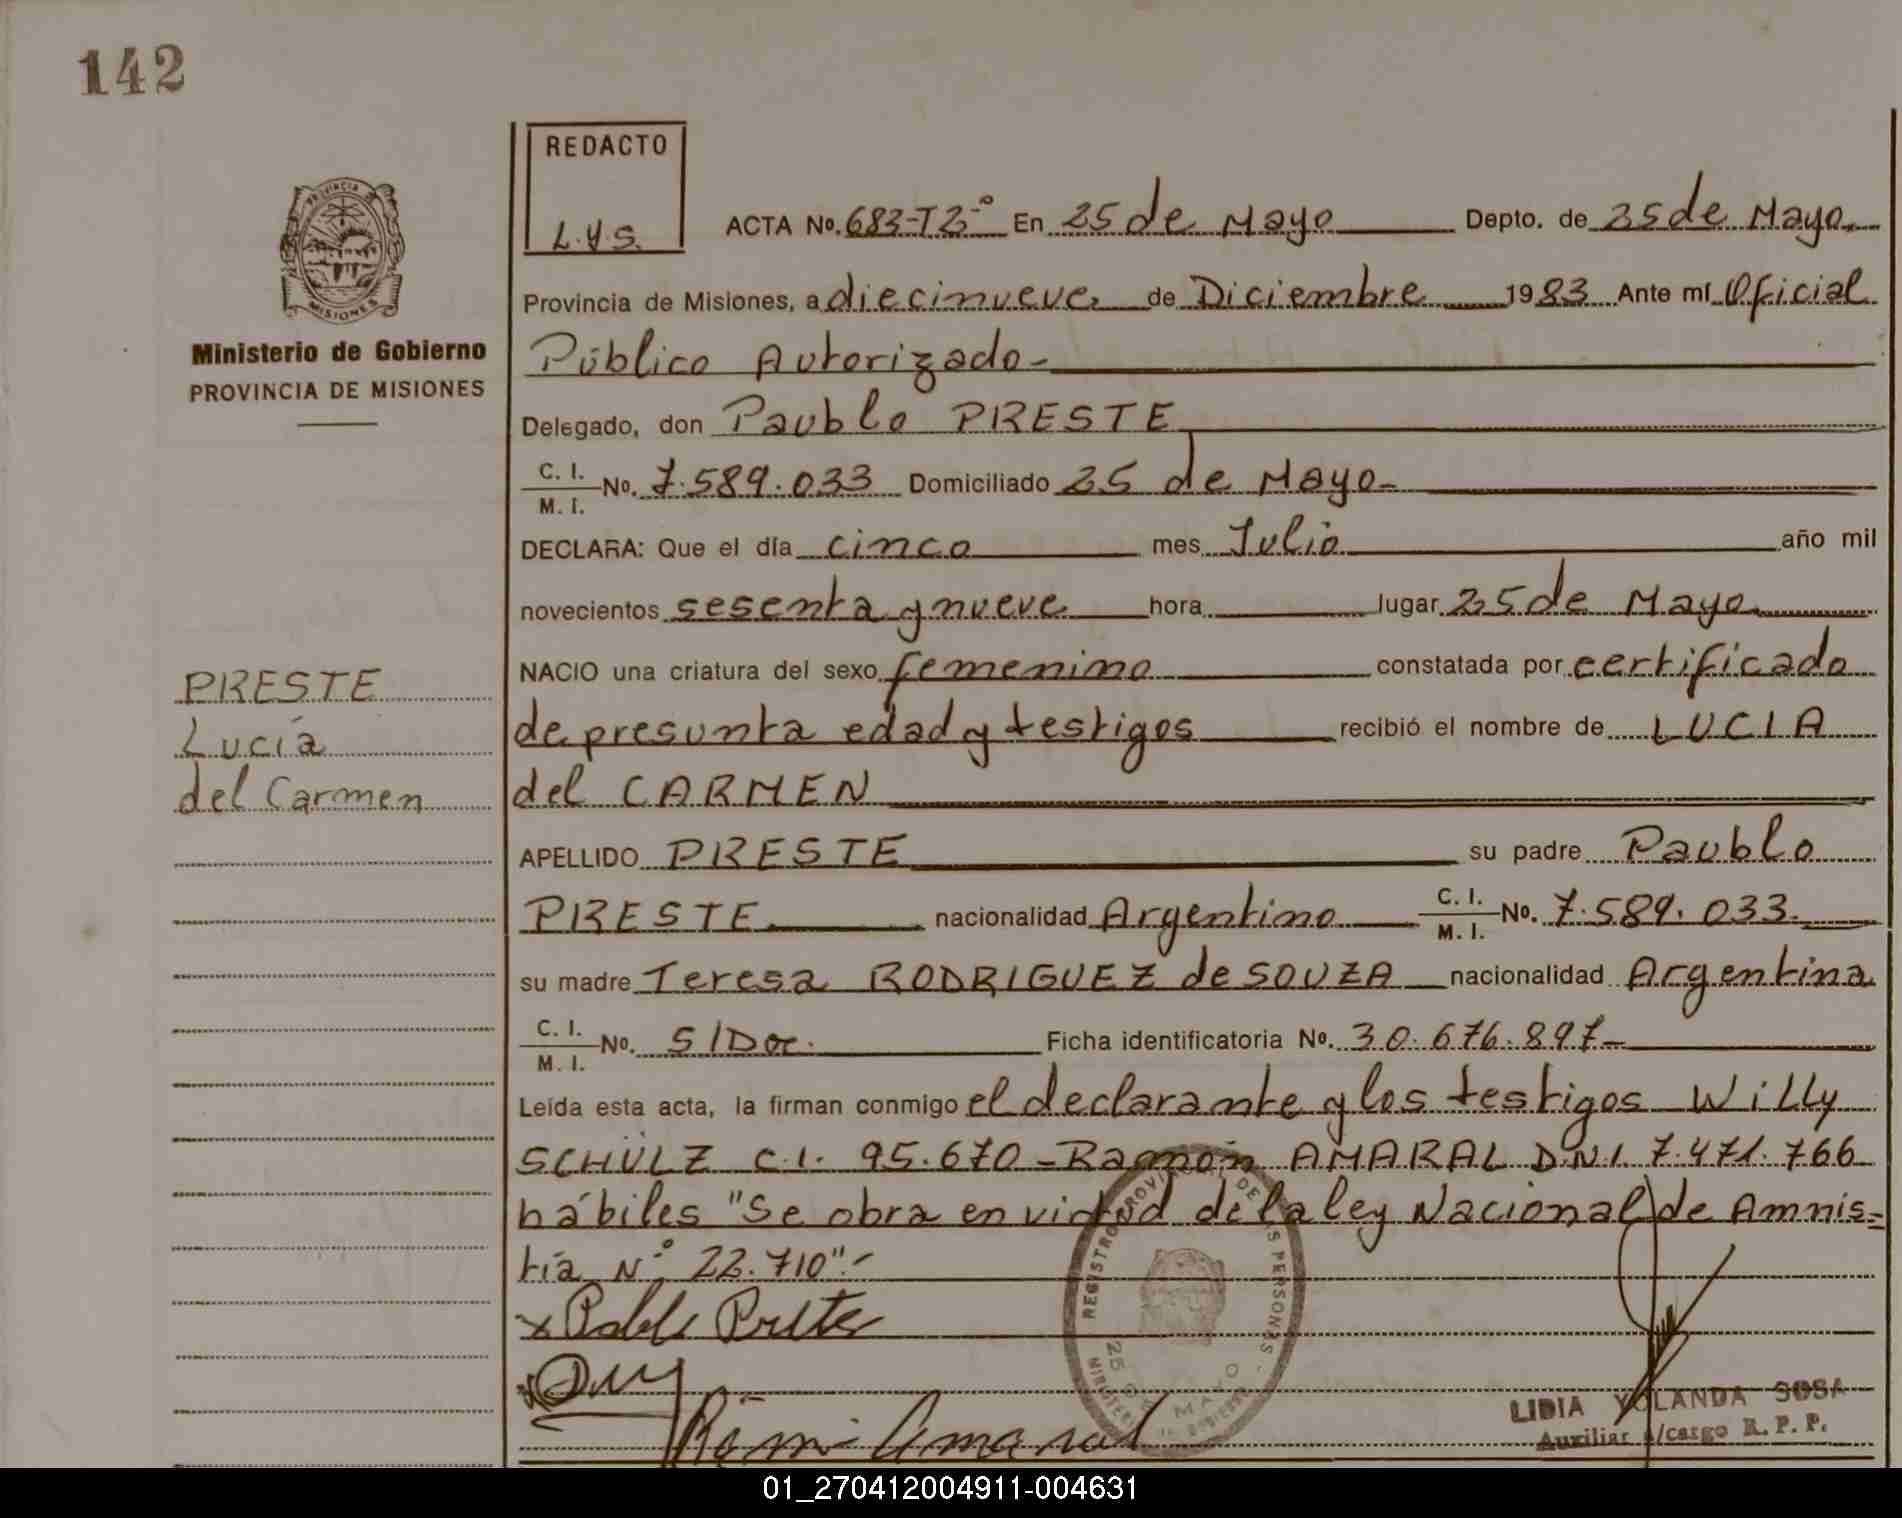 142
REDACTO
L.Y.S.
ACTA No. 683-T2-° En 25 de Mayo Depto. de 25 de Mayo
Provincia de Misiones, a diecinueve de Diciembre 1983 Ante mí Oficial
Público Autorizado-
Ministerio de Gobierno
PROVINCIA DE MISIONES
Delegado, don Paublo PRESTE
C. I.
M. I. No. 7.589.033 Domiciliado 25 de Mayo-
DECLARA: Que el día cinco mes Julio año mil
novecientos sesenta y nueve hora lugar 25 de Mayo
NACIO una criatura del sexo femenino constatada por certificado
de presunta edad y testigos recibió el nombre de LUCIA
del CARMEN
PRESTE
Lucía
del Carmen
APELLIDO PRESTE su padre Paublo
PRESTE nacionalidad Argentino C. I.
M. I. No. 7.589.033.
su madre Teresa RODRIGUEZ de SOUZA nacionalidad Argentina
C. I.
M. I. No. S/Doc. Ficha identificatoria No. 30.676.897-
Leída esta acta, la firman conmigo el declarante y los testigos Willy
SCHÜLZ C.I. 95.670-Ramón AMARAL DNI 7.471.766
hábiles "Se obra en virtud de la ley Nacional de Amnis=
tía N° 22.710".-
REGISTRO PROVINCIAL DE LAS PERSONAS
25 DE MAYO
MINISTERIO DE GOBIERNO
LIDIA YOLANDA SOSA
Auxiliar a/cargo R. P. P.
01_270412004911-004631